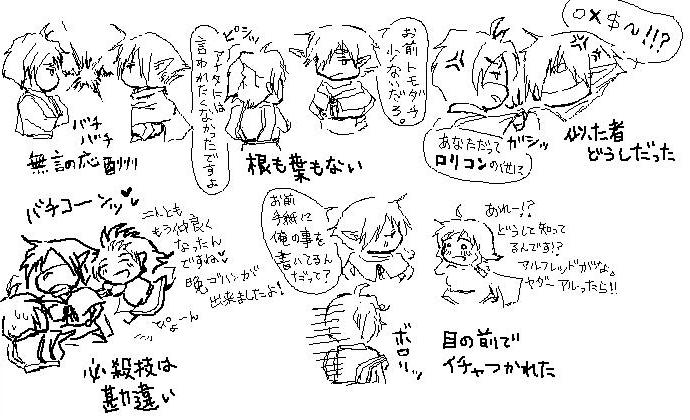 バチ
バチ
無言の応酬
ピシッ
アナタには
言われたくなかったですよ
お前トモダチ
少ないだろ。
根も葉もない
○×$~!!?
あなただって
ロリコンの他に
ガシッ
似た者
どうしだった
バチコーンッ♥
二人とも
もう仲良く
なったん
ですね♥
晩ゴハンが
出来ましたよ!
ぴょーん
必殺技は
勘違い
お前
手紙に
俺の事を
書いてるん
だって?
ボロリッ
あれー!?
どうして知って
るんです!?
アルフレッドがな。
ヤダー アルったら!!
目の前で
イチャつかれた